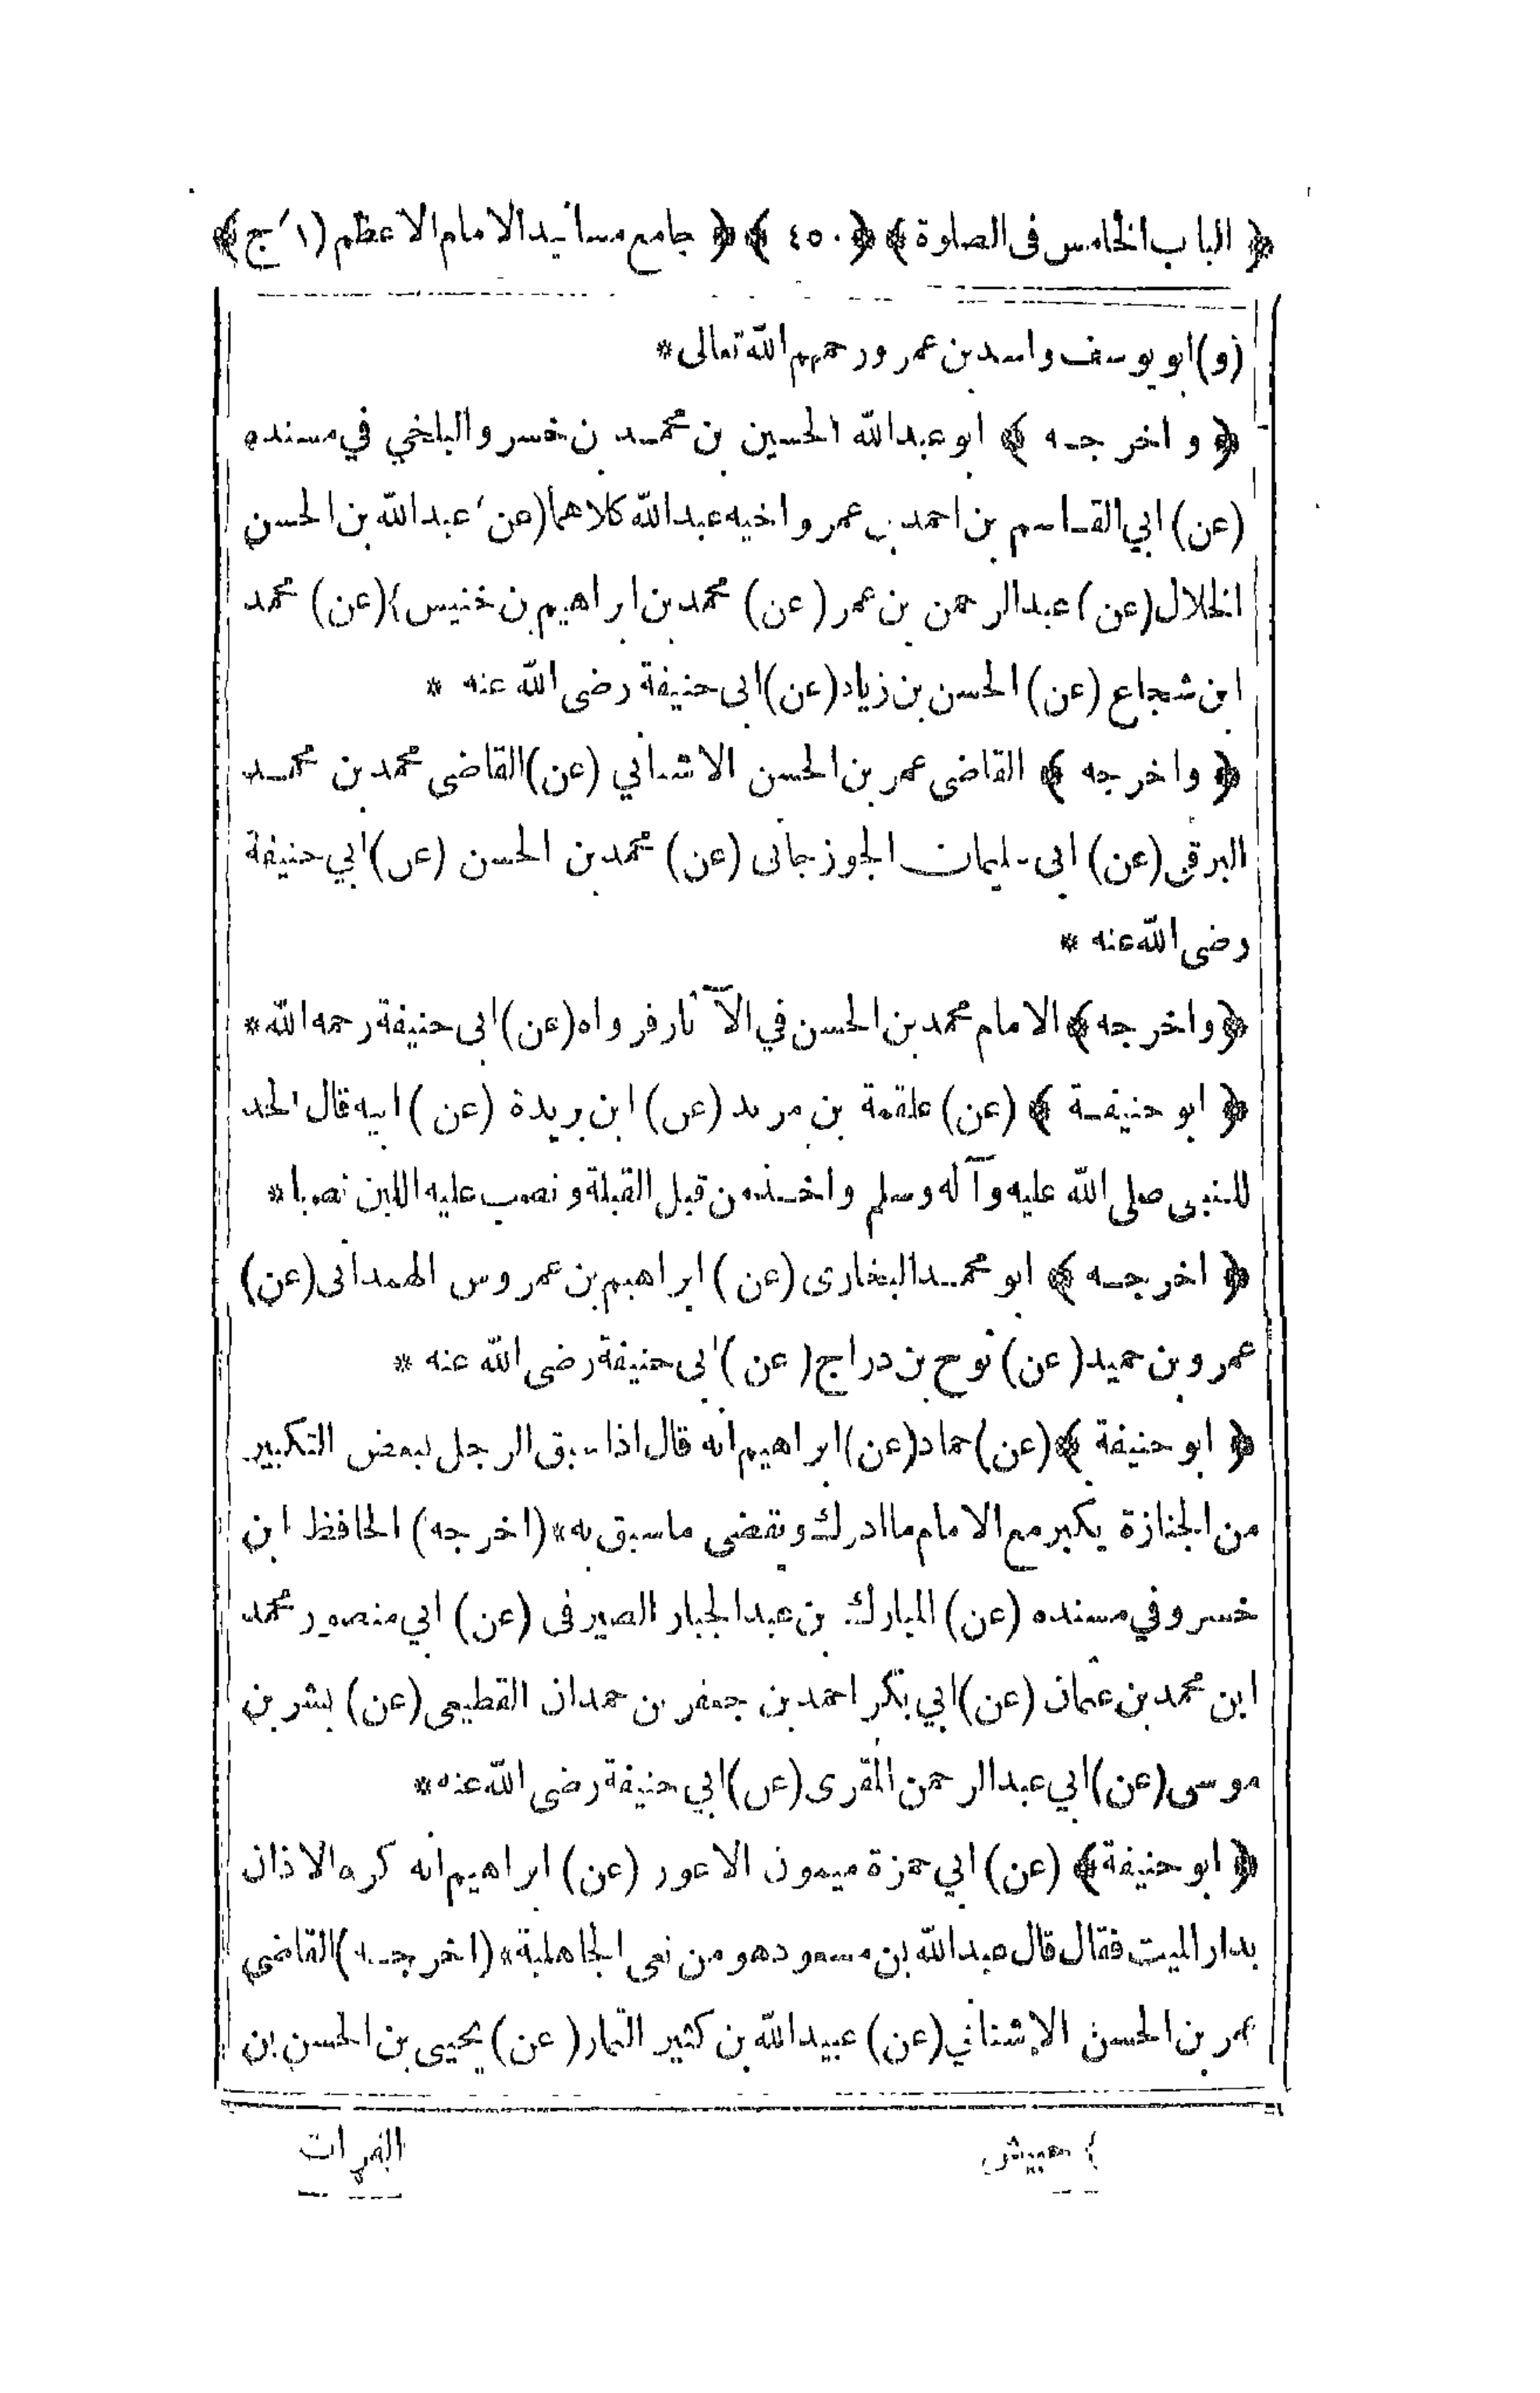 ﴿ الباب الخامس فى الصلوة ﴾ ﴿ ٤٥٠ ﴾ ﴿ جامع مسانيد الامام الاعظم (١ ج) ﴾
(و) ابو يوسف واسد بن عمرو رحمهم الله تعالى *
﴿ واخرجه ﴾ ابو عبد الله الحسين بن محمد بن خسرو البلخي في مسنده
(عن) ابي القاسم بن احمد بن عمر واخيه عبد الله كلاهما (عن) عبد الله بن الحسن
الخلال (عن) عبد الرحمن بن عمر (عن) محمد بن ابراهيم بن خنيس } (عن) محمد
ابن شجاع (عن) الحسن بن زياد (عن) ابى حنيفة رضى الله عنه *
﴿ واخرجه ﴾ القاضى عمر بن الحسن الاشنانى (عن) القاضى محمد بن محمد
البرقى (عن) ابى سليمان الجوزجانى (عن) محمد بن الحسن (عن) ابي حنيفة
رضى الله عنه *
﴿ واخرجه ﴾ الامام محمد بن الحسن في الآثار فرواه (عن) ابى حنيفة رحمه الله *
﴿ ابو حنيفة ﴾ (عن) علقمة بن مرثد (عن) ابن بريدة (عن) ابيه قال الحد
للنبى صلى الله عليه وآله وسلم واخذ من قبل القبلة ونصب عليه اللبن نصبا *
﴿ اخرجه ﴾ ابو محمد البخارى (عن) ابراهيم بن عمروس الهمدانى (عن)
عمرو بن حميد (عن) نوح بن دراج (عن) ابى حنيفة رضى الله عنه *
﴿ ابو حنيفة ﴾ (عن) حماد (عن) ابراهيم انه قال اذا سبق الرجل ببعض التكبير
من الجنازة يكبر مع الامام ما ادرك ويقضى ما سبق به * (اخرجه) الحافظ ابن
خسرو في مسنده (عن) المبارك بن عبد الجبار الصيرفى (عن) ابي منصور محمد
ابن محمد بن عثمان (عن) ابي بكر احمد بن جعفر بن حمدان القطيعى (عن) بشر بن
موسى (عن) ابي عبد الرحمن المقرى (عن) ابي حنيفة رضى الله عنه *
﴿ ابو حنيفة ﴾ (عن) ابي حمزة ميمون الاعور (عن) ابراهيم انه كره الاذان
بدار الميت فقال قال عبد الله بن مسعود هو من نعى الجاهلية * (اخرجه) القاضى
عمر بن الحسن الاشنانى (عن) عبيد الله بن كثير التمار (عن) يحيى بن الحسن بن
} حبيش
الفرات